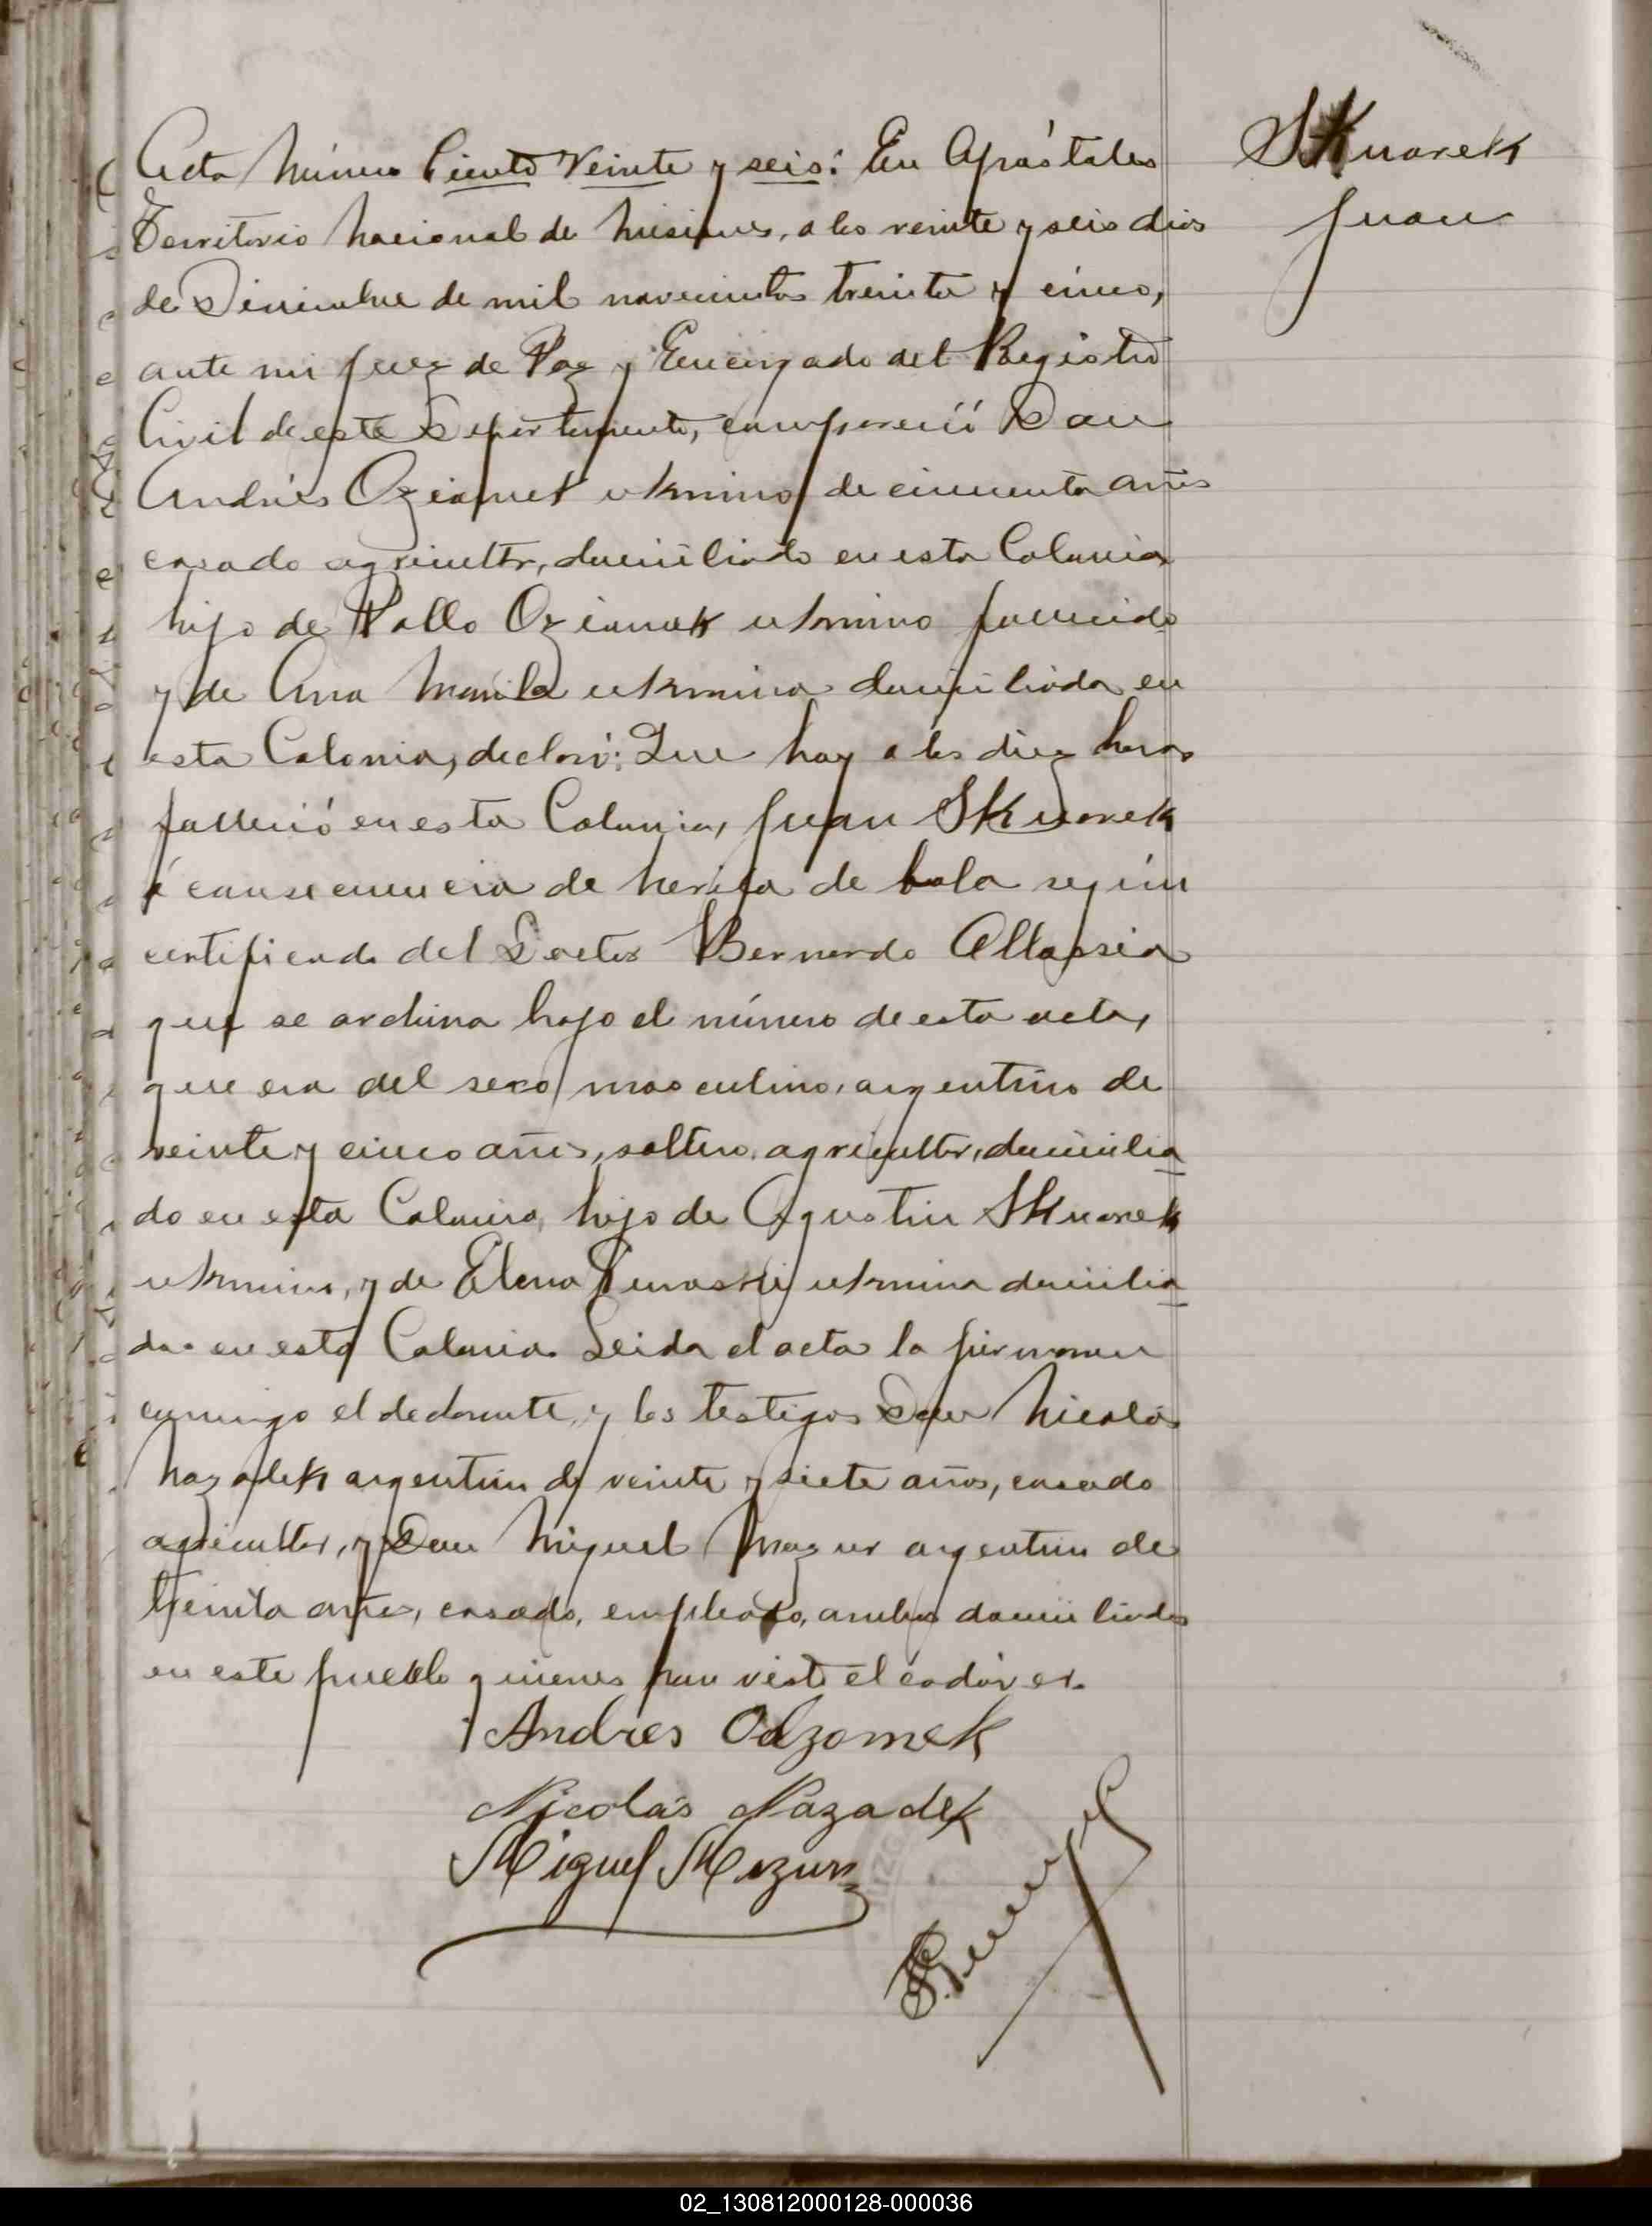 Acta Número Ciento Veinte y seis: En Apóstoles
Territorio Nacional de Misiones, a los veinte y seis dias
de Diciembre de mil novecientos treinta y cinco,
ante mi Juez de Paz y Encargado del Registro
Civil de este Departamento, compareció Don
Andrés Ozianek ukranino de cincuenta años
casado agricultor, domiciliado en esta Colonia
hijo de Pablo Ozianek ukranino fallecido
y de Ana ukranina domiciliada en
esta Colonia, declaró: Que hoy a las diez horas
falleció en esta Colonia, Juan Skuarek
á consecuencia de herida de bala según
certificado del Doctor Bernardo Allassia
que se archiva bajo el número de esta acta,
que era del sexo masculino, argentino de
veinte y cinco años, soltero, agricultor, domicilia
do en esta Colonia, hijo de Agustin Skuarek
ukranino, y de Elena ukranina domicilia
dos en esta Colonia. Leida el acta la firmaron
conmigo el declarante, y los testigos Don Nicolás
Nazadek argentino de veinte y siete años, casado
agricultor, y Don Miguel Mazur argentino de
treinta años, casado, empleado, ambos domiciliados
en este pueblo quienes han visto el cadáver.
Andres Odzomek
Nicolás Nazadek
Miguel Mazur
Skuarek
Juan
02_130812000128-000036